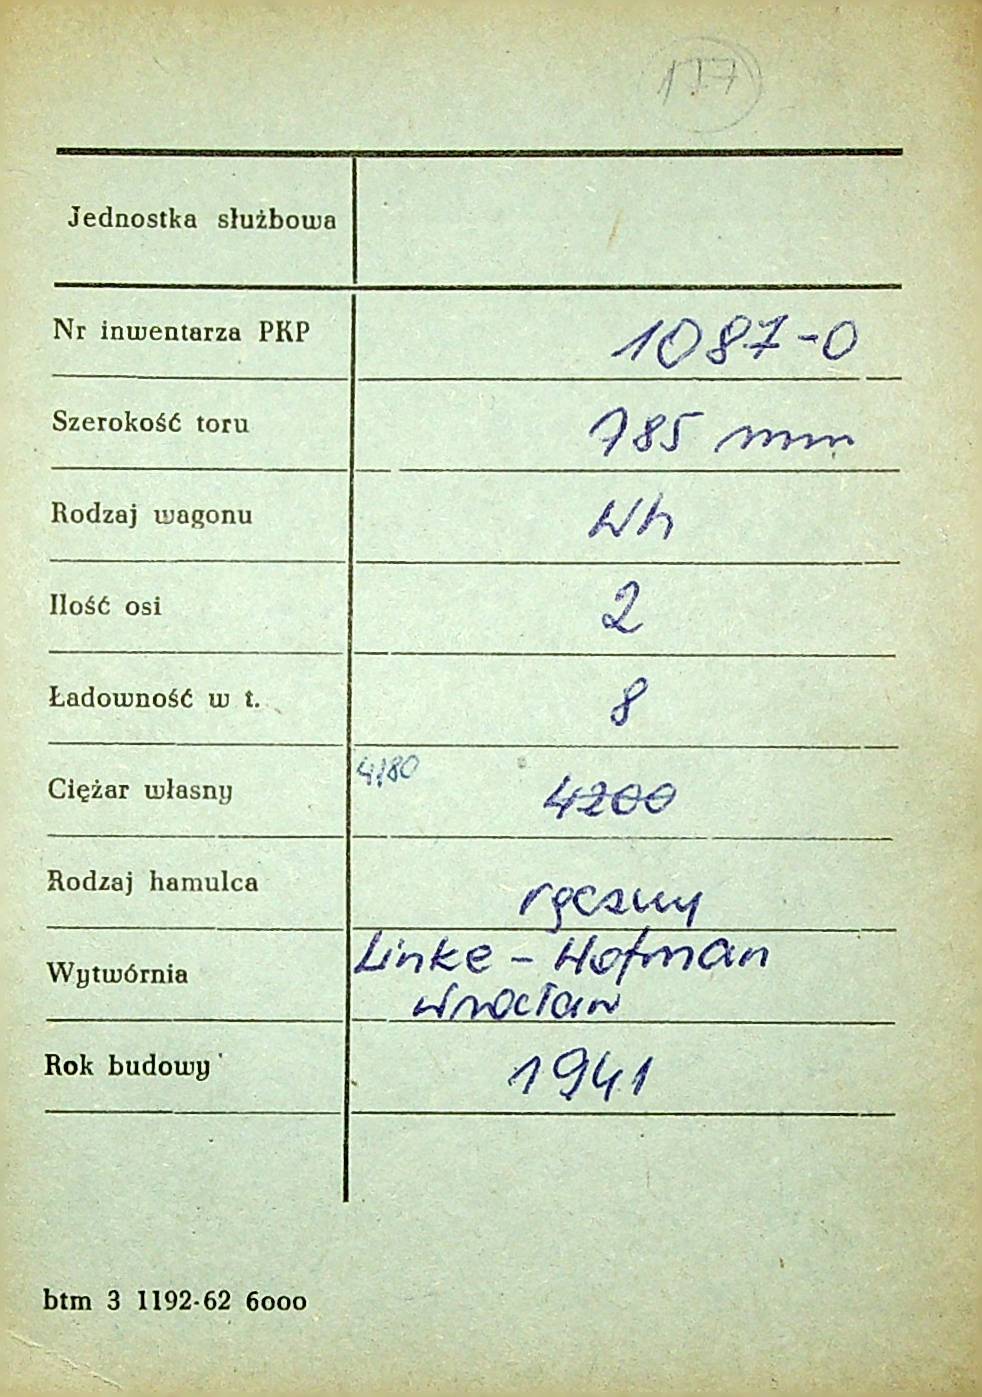 177
Jednostka służbowa
Nr inwentarza PKP 1087-0
Szerokość toru 785 mm
Rodzaj wagonu Wh
Ilość osi 2
Ładowność w t. 8
Ciężar własny 4180 4200
Rodzaj hamulca ręczny
Wytwórnia Linke - Hofman
Wrocław
Rok budowy 1941
btm 3 1192-62 6000